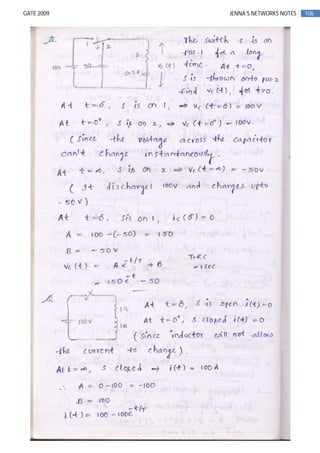 GATE 2009
JENNA'S NETWORKS NOTES 106
The switch S is on
pos-1 for a long
time. At t=0,
S is thrown onto pos-2
find Vc(t), for t>0.
1 2
100 50 Vc(t)
At t=0⁻, S is on 1, ⇒ Vc(t=0⁻) = 100V
At t=0⁺, S is on 2, ⇒ Vc(t=0⁺) = 100V.
(Since the voltage across the capacitor
can't change instantaneously.
At t=∞, S is on 2 ⇒ Vc(t=∞) = -50V
( It discharges 100V and charges upto
-50V)
At t=0⁻, S is on 1, ic(0⁻) = 0
A = 100 -(-50) = 150
B = -50V
Vc(t) = A e^-t/τ + B
T=RC
=1sec
= 150e^-t - 50
100V
1Ω
1H
At t=0⁻, S is open i(t)=0
At t=0⁺, S closed i(t)=0
(Since inductor will not allow
the current to change).
At t=∞, S closed ⇒ i(t) = 100A
∴ A = 0-100 = -100
B = 100
i(t) = 100 - 100e^-t/τ